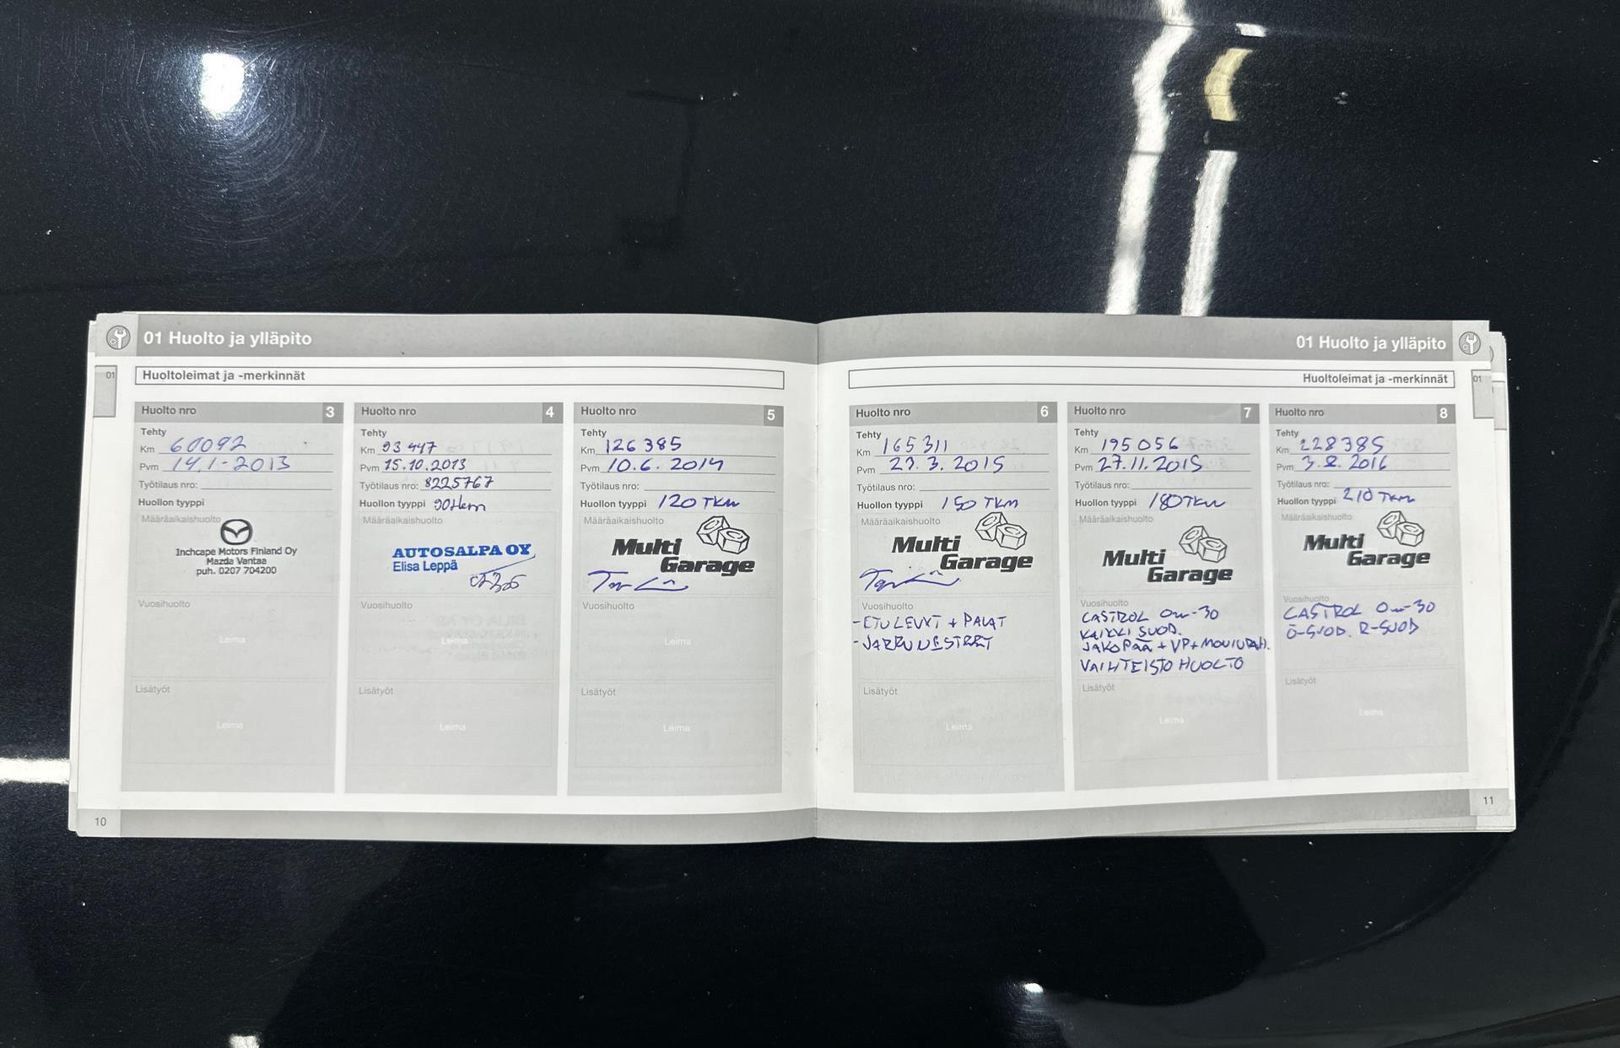 01 Huolto ja ylläpito
01
Huoltoleimat ja -merkinnät
Huolto nro 3
Tehty
Km 60092
Pvm 14.1-2013
Työtilaus nro:
Huollon tyyppi
Määräaikaishuolto
Inchcape Motors Finland Oy
Mazda Vantaa
puh. 0207 704200
Vuosihuolto
Leima
Lisätyöt
Leima
Huolto nro 4
Tehty
Km 93 447
Pvm 15.10.2013
Työtilaus nro: 8225767
Huollon tyyppi
Määräaikaishuolto
AUTOSALPA OY
Elisa Leppä
Vuosihuolto
Leima
Lisätyöt
Leima
Huolto nro 5
Tehty
Km 126 385
Pvm 10.6. 2014
Työtilaus nro:
Huollon tyyppi 120 TKM
Määräaikaishuolto
Multi
Garage
Vuosihuolto
Leima
Lisätyöt
Leima
10
01 Huolto ja ylläpito
01
Huoltoleimat ja -merkinnät
Huolto nro 6
Tehty
Km 165 311
Pvm 27.3. 2015
Työtilaus nro:
Huollon tyyppi 150 TKM
Määräaikaishuolto
Multi
Garage
Vuosihuolto
-ETULEVYT + PALAT
-JARRUNESTEET
Lisätyöt
Leima
Huolto nro 7
Tehty
Km 195 056
Pvm 27.11.2015
Työtilaus nro:
Huollon tyyppi 180TKM
Määräaikaishuolto
Multi
Garage
Vuosihuolto
CASTROL 0W-30
KAIKKI SUOD.
JAKOPÄÄ + VP+
VAIHTEISTO HUOLTO
Lisätyöt
Leima
Huolto nro 8
Tehty
Km 228385
Pvm 3.8. 2016
Työtilaus nro:
Huollon tyyppi 210 TKM
Määräaikaishuolto
Multi
Garage
Vuosihuolto
CASTROL 0W-30
Ö-SUOD. R-SUOD
Lisätyöt
Leima
11